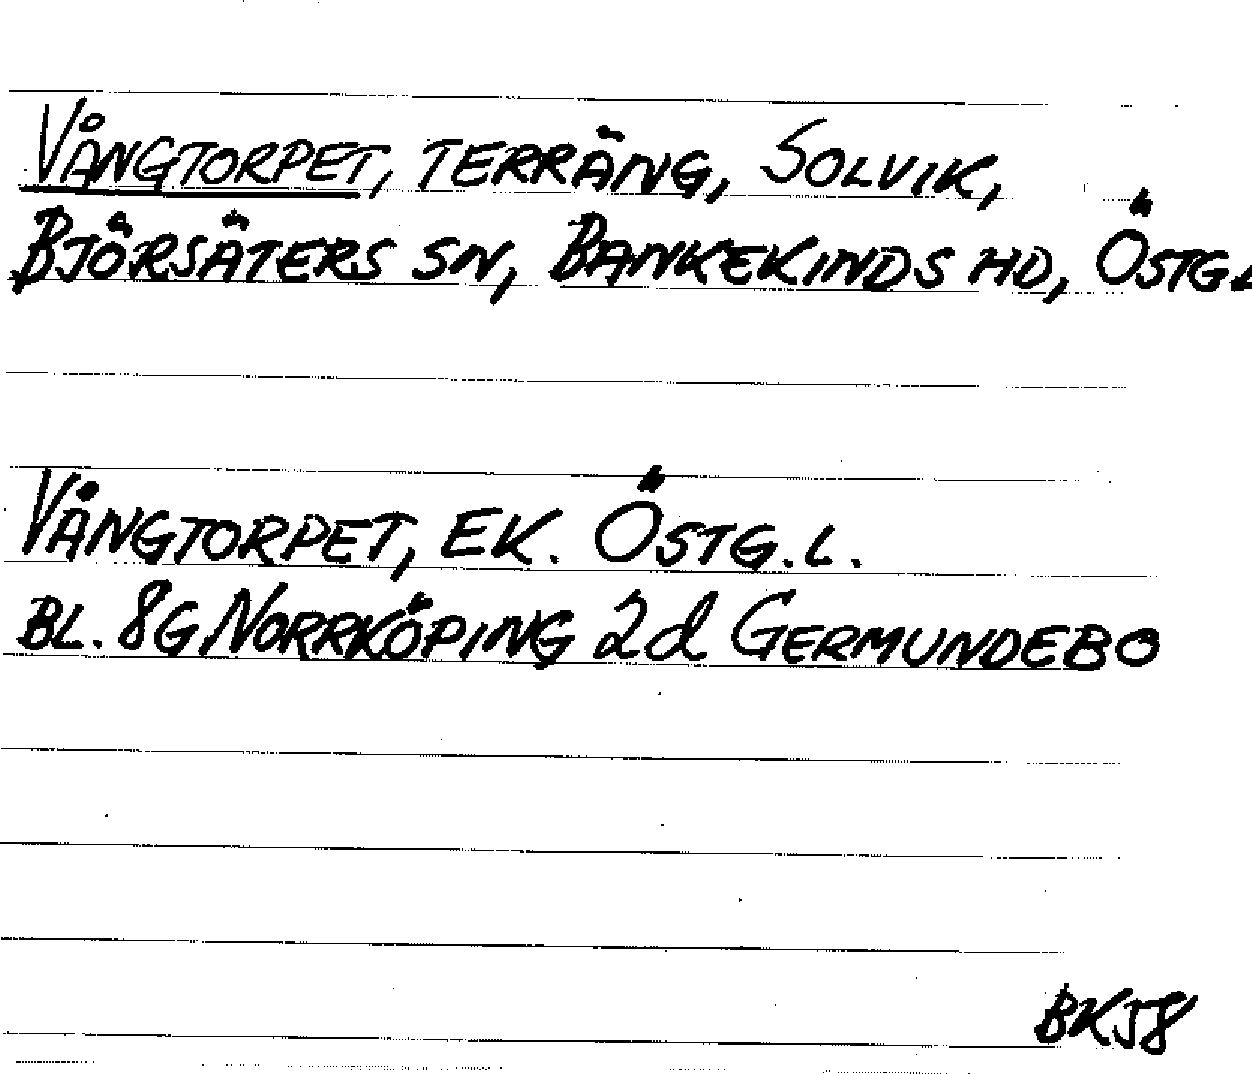 VÅNGTORPET, TERRÄNG, SOLVIK,
BJÖRSÄTERS SN, BANKEKINDS HD, ÖSTG.L
VÅNGTORPET, EK. ÖSTG.L.
BL. 8G NORRKÖPING 2d GERMUNDEBO
BKJ8